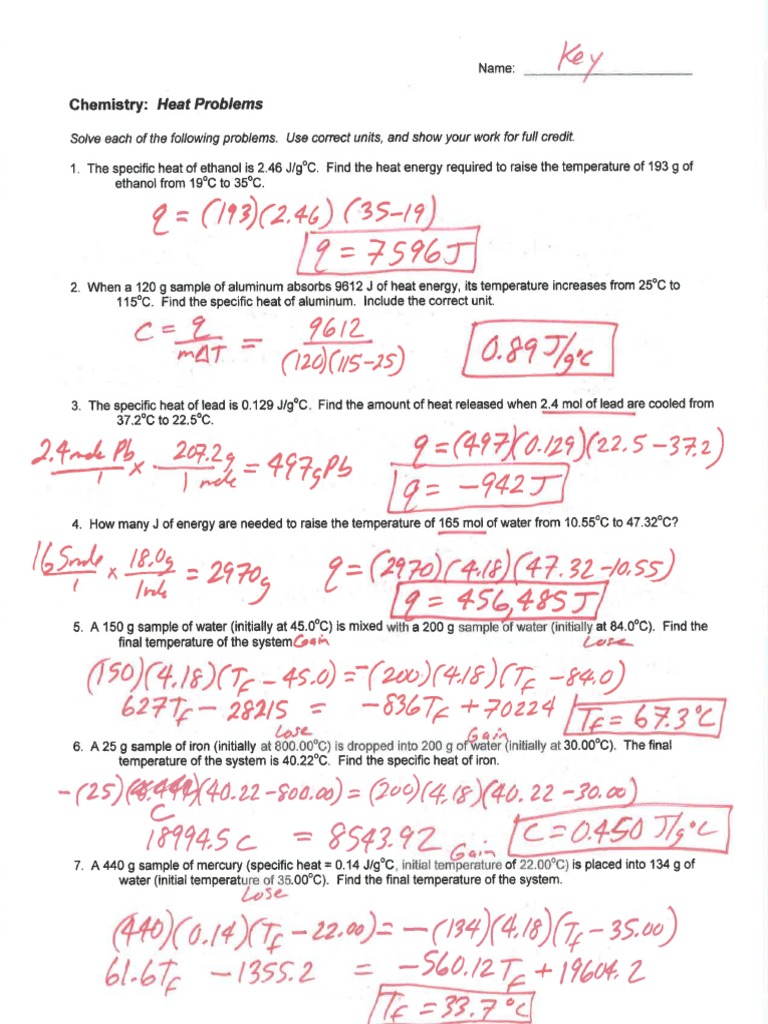 Name: Key
Chemistry: Heat Problems
Solve each of the following problems. Use correct units, and show your work for full credit.
1. The specific heat of ethanol is 2.46 J/g°C. Find the heat energy required to raise the temperature of 193 g of
ethanol from 19°C to 35°C.
q = (193)(2.46) (35-19)
q = 7596 J
2. When a 120 g sample of aluminum absorbs 9612 J of heat energy, its temperature increases from 25°C to
115°C. Find the specific heat of aluminum. Include the correct unit.
C = q / mΔT = 9612 / (120)(115-25)
0.89 J/g°C
3. The specific heat of lead is 0.129 J/g°C. Find the amount of heat released when 2.4 mol of lead are cooled from
37.2°C to 22.5°C.
2.4 mole Pb / 1 x 207.2g / 1 mole = 497g Pb
q = (497)(0.129)(22.5 - 37.2)
q = -942 J
4. How many J of energy are needed to raise the temperature of 165 mol of water from 10.55°C to 47.32°C?
165 mole / 1 x 18.0g / 1 mole = 2970g
q = (2970)(4.18)(47.32-10.55)
q = 456,485 J
5. A 150 g sample of water (initially at 45.0°C) is mixed with a 200 g sample of water (initially at 84.0°C). Find the
final temperature of the system. Gain Lose
(150)(4.18)(Tf - 45.0) = -(200)(4.18)(Tf - 84.0)
627Tf - 28215 = -836Tf + 70224
Tf = 67.3°C
Lose Gain
6. A 25 g sample of iron (initially at 800.00°C) is dropped into 200 g of water (initially at 30.00°C). The final
temperature of the system is 40.22°C. Find the specific heat of iron.
-(25)(C)(40.22-800.00) = (200)(4.18)(40.22-30.00)
18994.5 C = 8543.92
C = 0.450 J/g°C
Gain
7. A 440 g sample of mercury (specific heat = 0.14 J/g°C, initial temperature of 22.00°C) is placed into 134 g of
water (initial temperature of 35.00°C). Find the final temperature of the system.
Lose
(440)(0.14)(Tf - 22.00) = -(134)(4.18)(Tf - 35.00)
61.6Tf - 1355.2 = -560.12Tf + 19604.2
Tf = 33.7°C